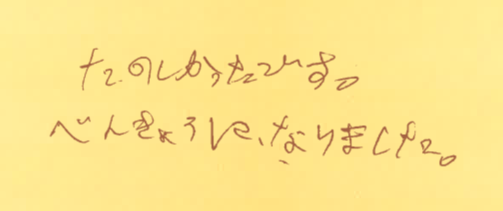 たのしかったです。
べんきょうに、なりました。